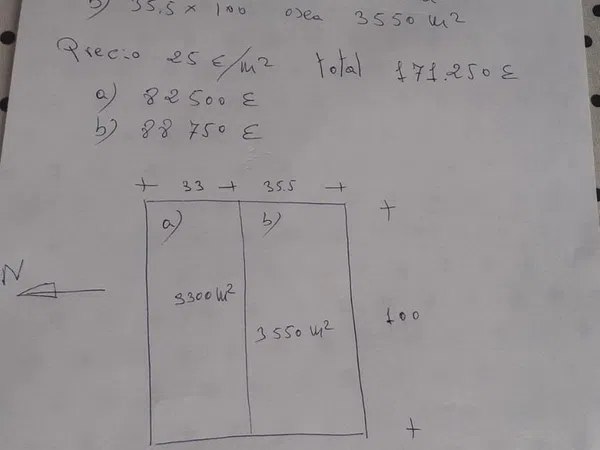 b) 35,5 x 100 osea 3550 m²
Precio 25 €/m² total 171.250 €
a) 82 500 €
b) 88 750 €
+ 33 + 35.5 +
a) b) +
N
3300 m²
100
3550 m²
+